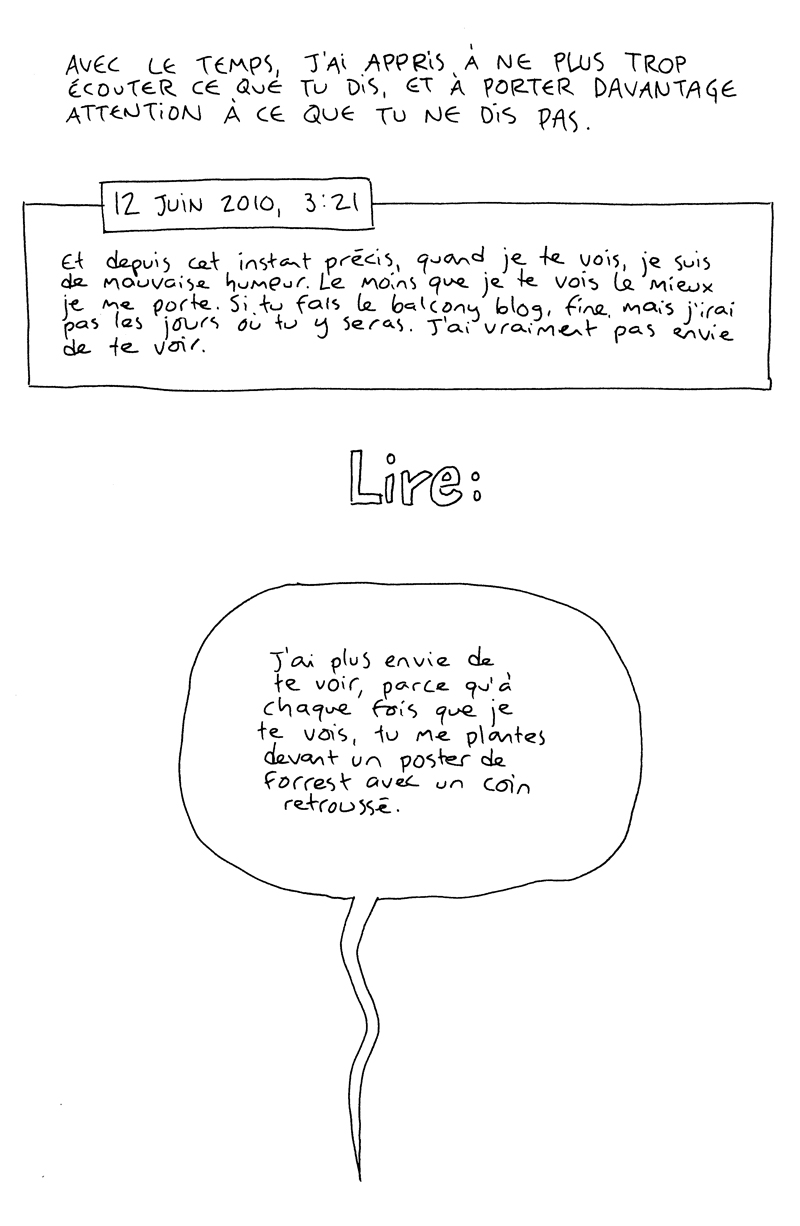 AVEC LE TEMPS, J'AI APPRIS À NE PLUS TROP
ÉCOUTER CE QUE TU DIS, ET À PORTER DAVANTAGE
ATTENTION À CE QUE TU NE DIS PAS.
12 JUIN 2010, 3:21
Et depuis cet instant précis, quand je te vois, je suis
de mauvaise humeur. Le moins que je te vois le mieux
je me porte. Si tu fais le balcony blog, fine, mais j'irai
pas les jours où tu y seras. J'ai vraiment pas envie
de te voir.
Lire:
J'ai plus envie de
te voir, parce qu'à
chaque fois que je
te vois, tu me plantes
devant un poster de
Forrest avec un coin
retroussé.